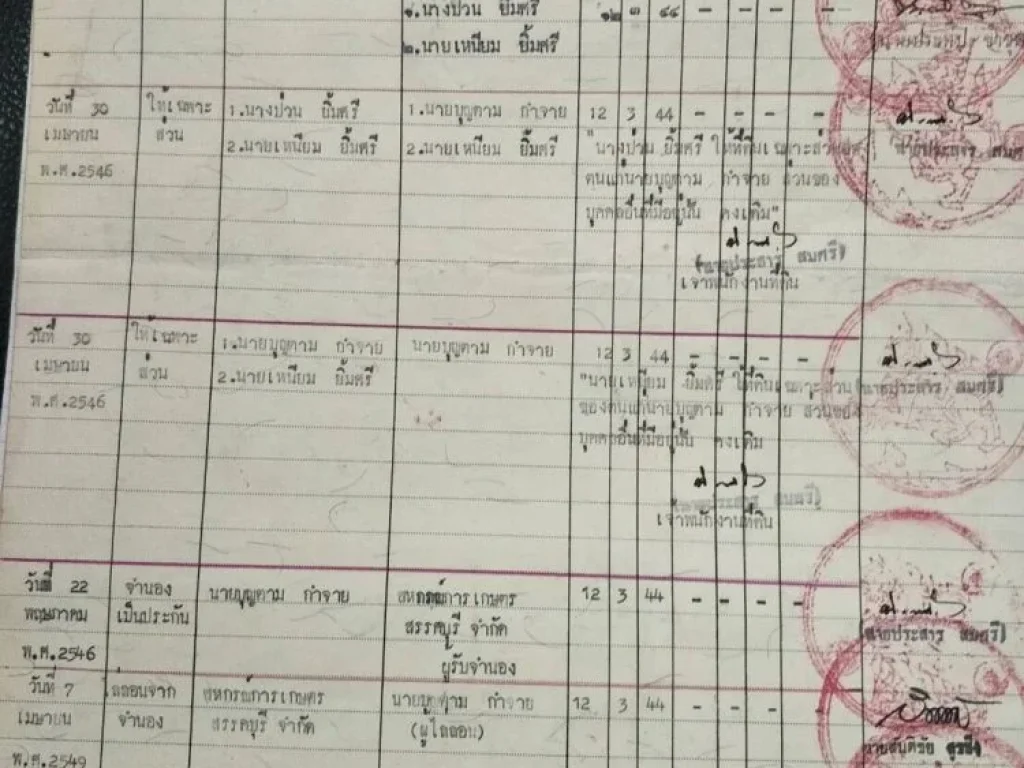 ๑.นางป่วน ยิ้มศรี ๑๒ ๓ ๔๔ – – – –
๒.นายเหนียม ยิ้มศรี
วันที่ 30 ให้เฉพาะ 1.นางป่วน ยิ้มศรี 1.นายบุญตาม กำจาย 12 3 44 – – – –
เมษายน ส่วน 2.นายเหนียม ยิ้มศรี 2.นายเหนียม ยิ้มศรี "นางป่วน ยิ้มศรี ให้ที่ดินเฉพาะส่วนของ นายประสาร สมศรี
พ.ศ.2546 ตนแก่นายบุญตาม กำจาย ส่วนของ
บุคคลอื่นที่มีอยู่นั้น คงเดิม"
(นายประสาร สมศรี)
เจ้าพนักงานที่ดิน
วันที่ 30 ให้เฉพาะ 1.นายบุญตาม กำจาย นายบุญตาม กำจาย 12 3 44 – – – –
เมษายน ส่วน 2.นายเหนียม ยิ้มศรี "นายเหนียม ยิ้มศรี ให้ที่ดินเฉพาะส่วน (นายประสาร สมศรี)
พ.ศ.2546 ของตนแก่นายบุญตาม กำจาย ส่วนของ
บุคคลอื่นที่มีอยู่นั้น คงเดิม
(นายประสาร สมศรี)
เจ้าพนักงานที่ดิน
วันที่ 22 จำนอง นายบุญตาม กำจาย สหกรณ์การเกษตร 12 3 44 – – – –
พฤษภาคม เป็นประกัน สรรคบุรี จำกัด (นายประสาร สมศรี)
พ.ศ.2546 ผู้รับจำนอง
วันที่ 7 ไถ่ถอนจาก สหกรณ์การเกษตร นายบุญตาม กำจาย 12 3 44 – – – –
เมษายน จำนอง สรรคบุรี จำกัด (ผู้ไถ่ถอน)
พ.ศ.2549